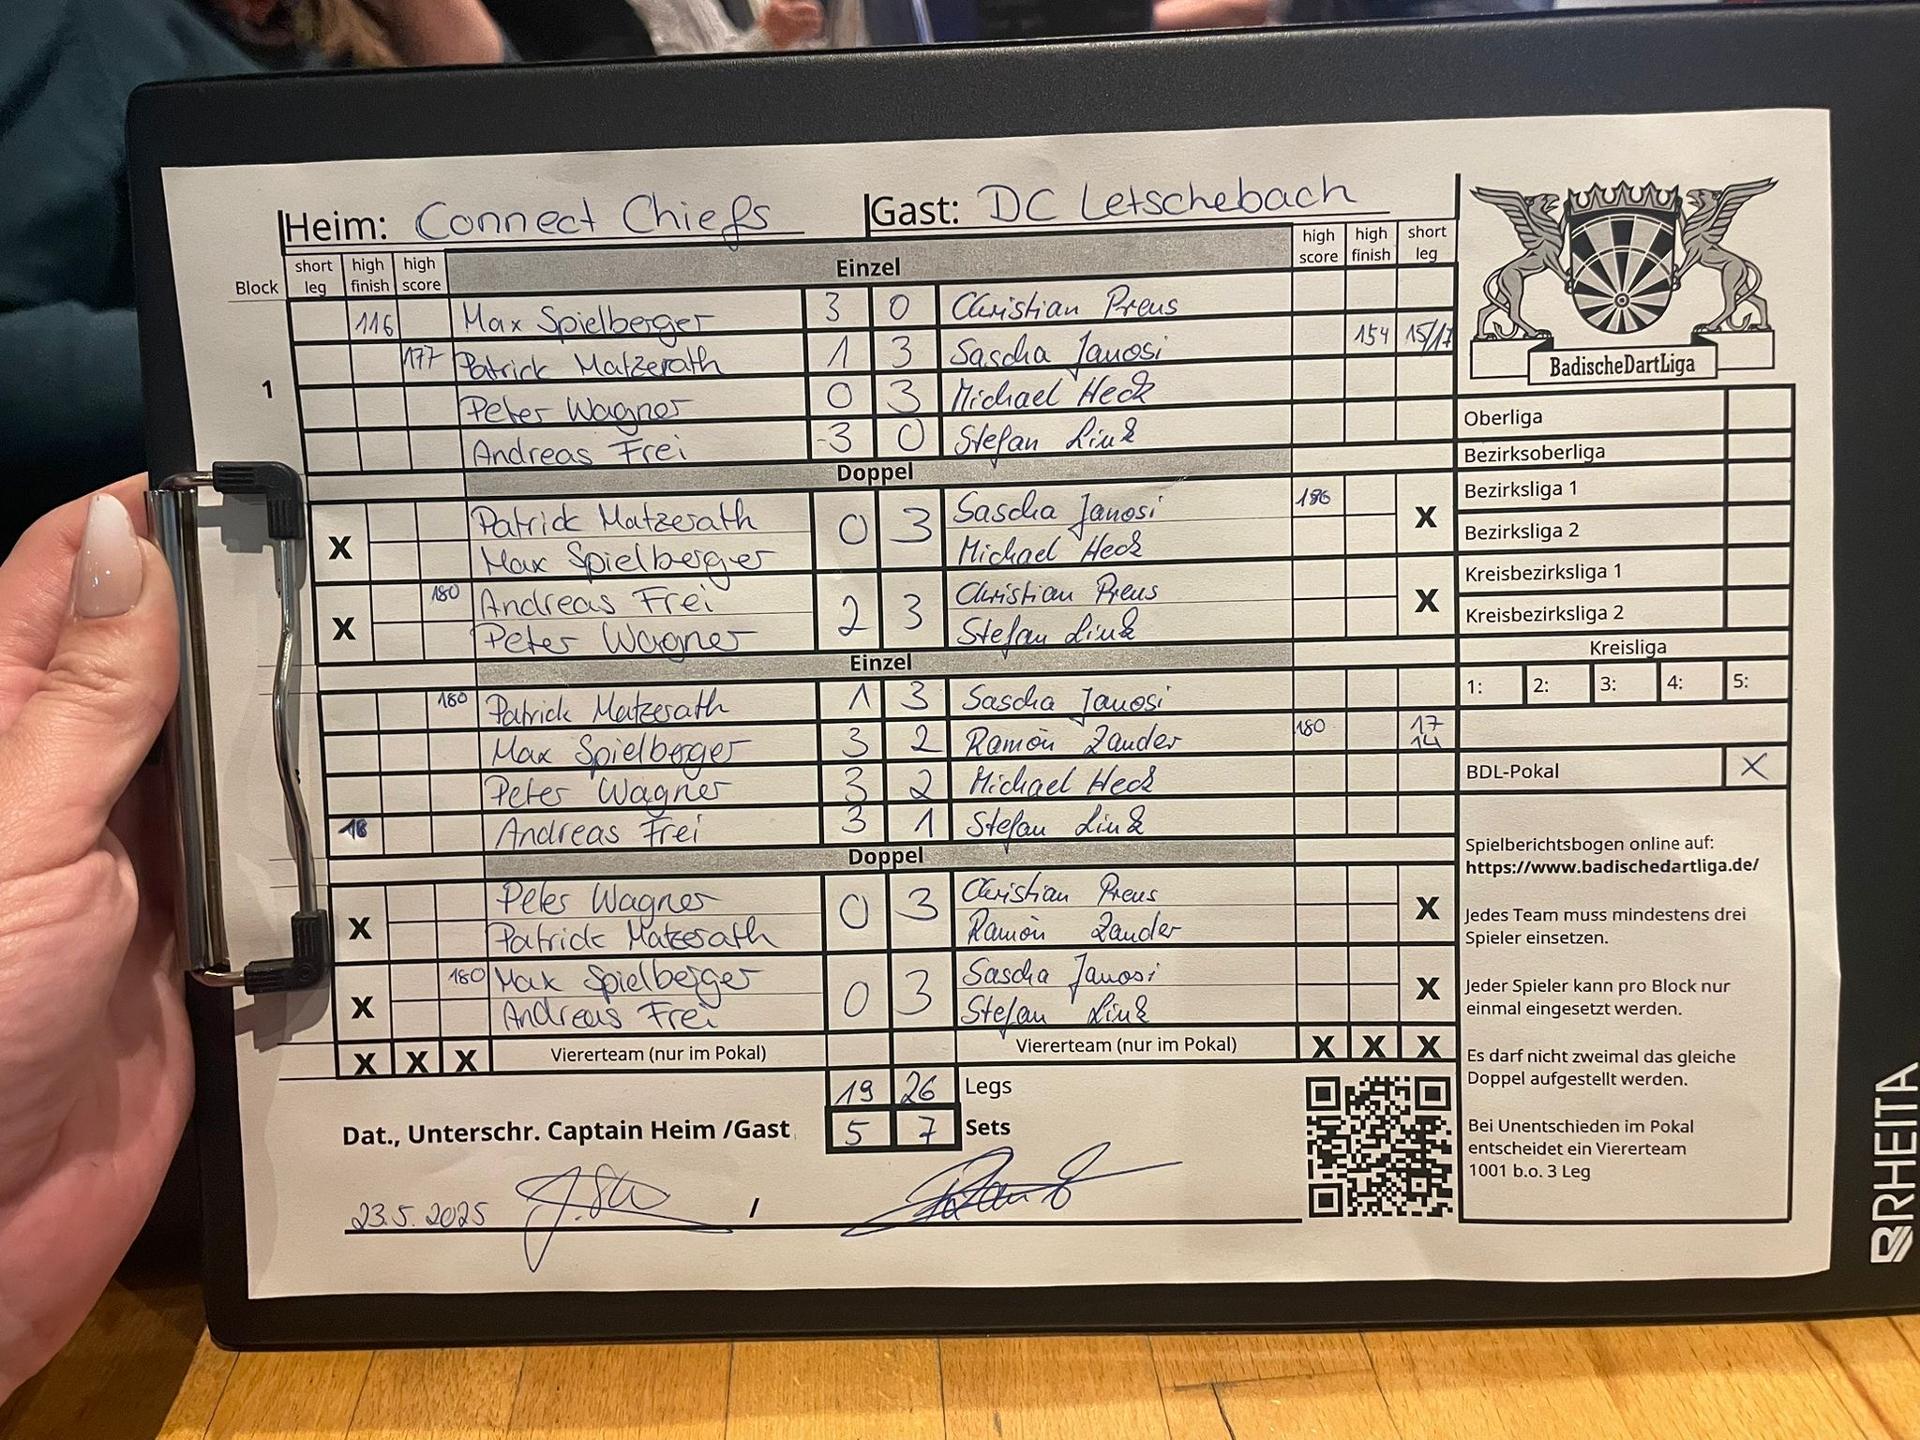 Heim: Connect Chiefs Gast: DC Letschebach
Block short leg high finish high score Einzel high score high finish short leg
116 Max Spielberger 3 0 Christian Preus
177 Patrick Matzerath 1 3 Sascha Janosi 154 15/17
1
Peter Wagner 0 3 Michael Heck
Andreas Frei 3 0 Stefan Link
Doppel
X Patrick Matzerath 0 3 Sascha Janosi X
Max Spielberger Michael Heck
X 180 Andreas Frei 2 3 Christian Preus X
Peter Wagner Stefan Link
Einzel
180 Patrick Matzerath 1 3 Sascha Janosi
Max Spielberger 3 2 Ramón Zander 180 17 14
Peter Wagner 3 2 Michael Heck
18 Andreas Frei 3 1 Stefan Link
Doppel
X Peter Wagner 0 3 Christian Preus X
Patrick Matzerath Ramón Zander
X 180 Max Spielberger 0 3 Sascha Janosi X
Andreas Frei Stefan Link
X X X Viererteam (nur im Pokal) Viererteam (nur im Pokal) X X X
19 26 Legs
Dat., Unterschr. Captain Heim /Gast 5 7 Sets
23.5.2025 /
BadischeDartLiga
Oberliga
Bezirksoberliga
Bezirksliga 1
Bezirksliga 2
Kreisbezirksliga 1
Kreisbezirksliga 2
Kreisliga
1: 2: 3: 4: 5:
BDL-Pokal X
Spielberichtsbogen online auf:
https://www.badischedartliga.de/
Jedes Team muss mindestens drei
Spieler einsetzen.
Jeder Spieler kann pro Block nur
einmal eingesetzt werden.
Es darf nicht zweimal das gleiche
Doppel aufgestellt werden.
Bei Unentschieden im Pokal
entscheidet ein Viererteam
1001 b.o. 3 Leg
RHEITA